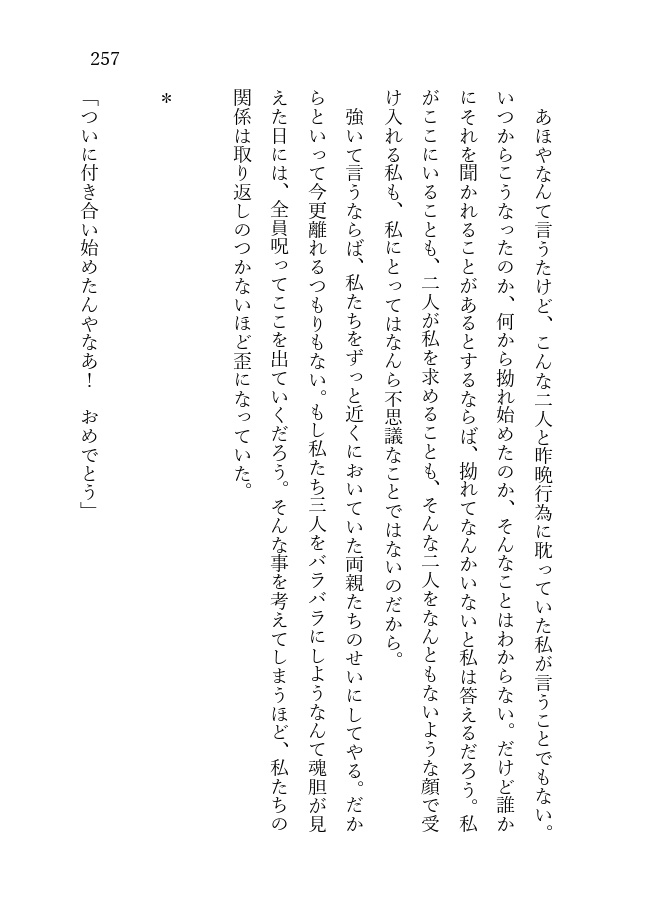 257
　あほやなんて言うたけど、こんな二人と昨晩行為に耽っていた私が言うことでもない。
いつからこうなったのか、何から拗れ始めたのか、そんなことはわからない。だけど誰か
にそれを聞かれることがあるとするならば、拗れてなんかいないと私は答えるだろう。私
がここにいることも、二人が私を求めることも、そんな二人をなんともないような顔で受
け入れる私も、私にとってはなんら不思議なことではないのだから。
　強いて言うならば、私たちをずっと近くにおいていた両親たちのせいにしてやる。だか
らといって今更離れるつもりもない。もし私たち三人をバラバラにしようなんて魂胆が見
えた日には、全員呪ってここを出ていくだろう。そんな事を考えてしまうほど、私たちの
関係は取り返しのつかないほど歪になっていた。
＊
「ついに付き合い始めたんやなあ！　おめでとう」